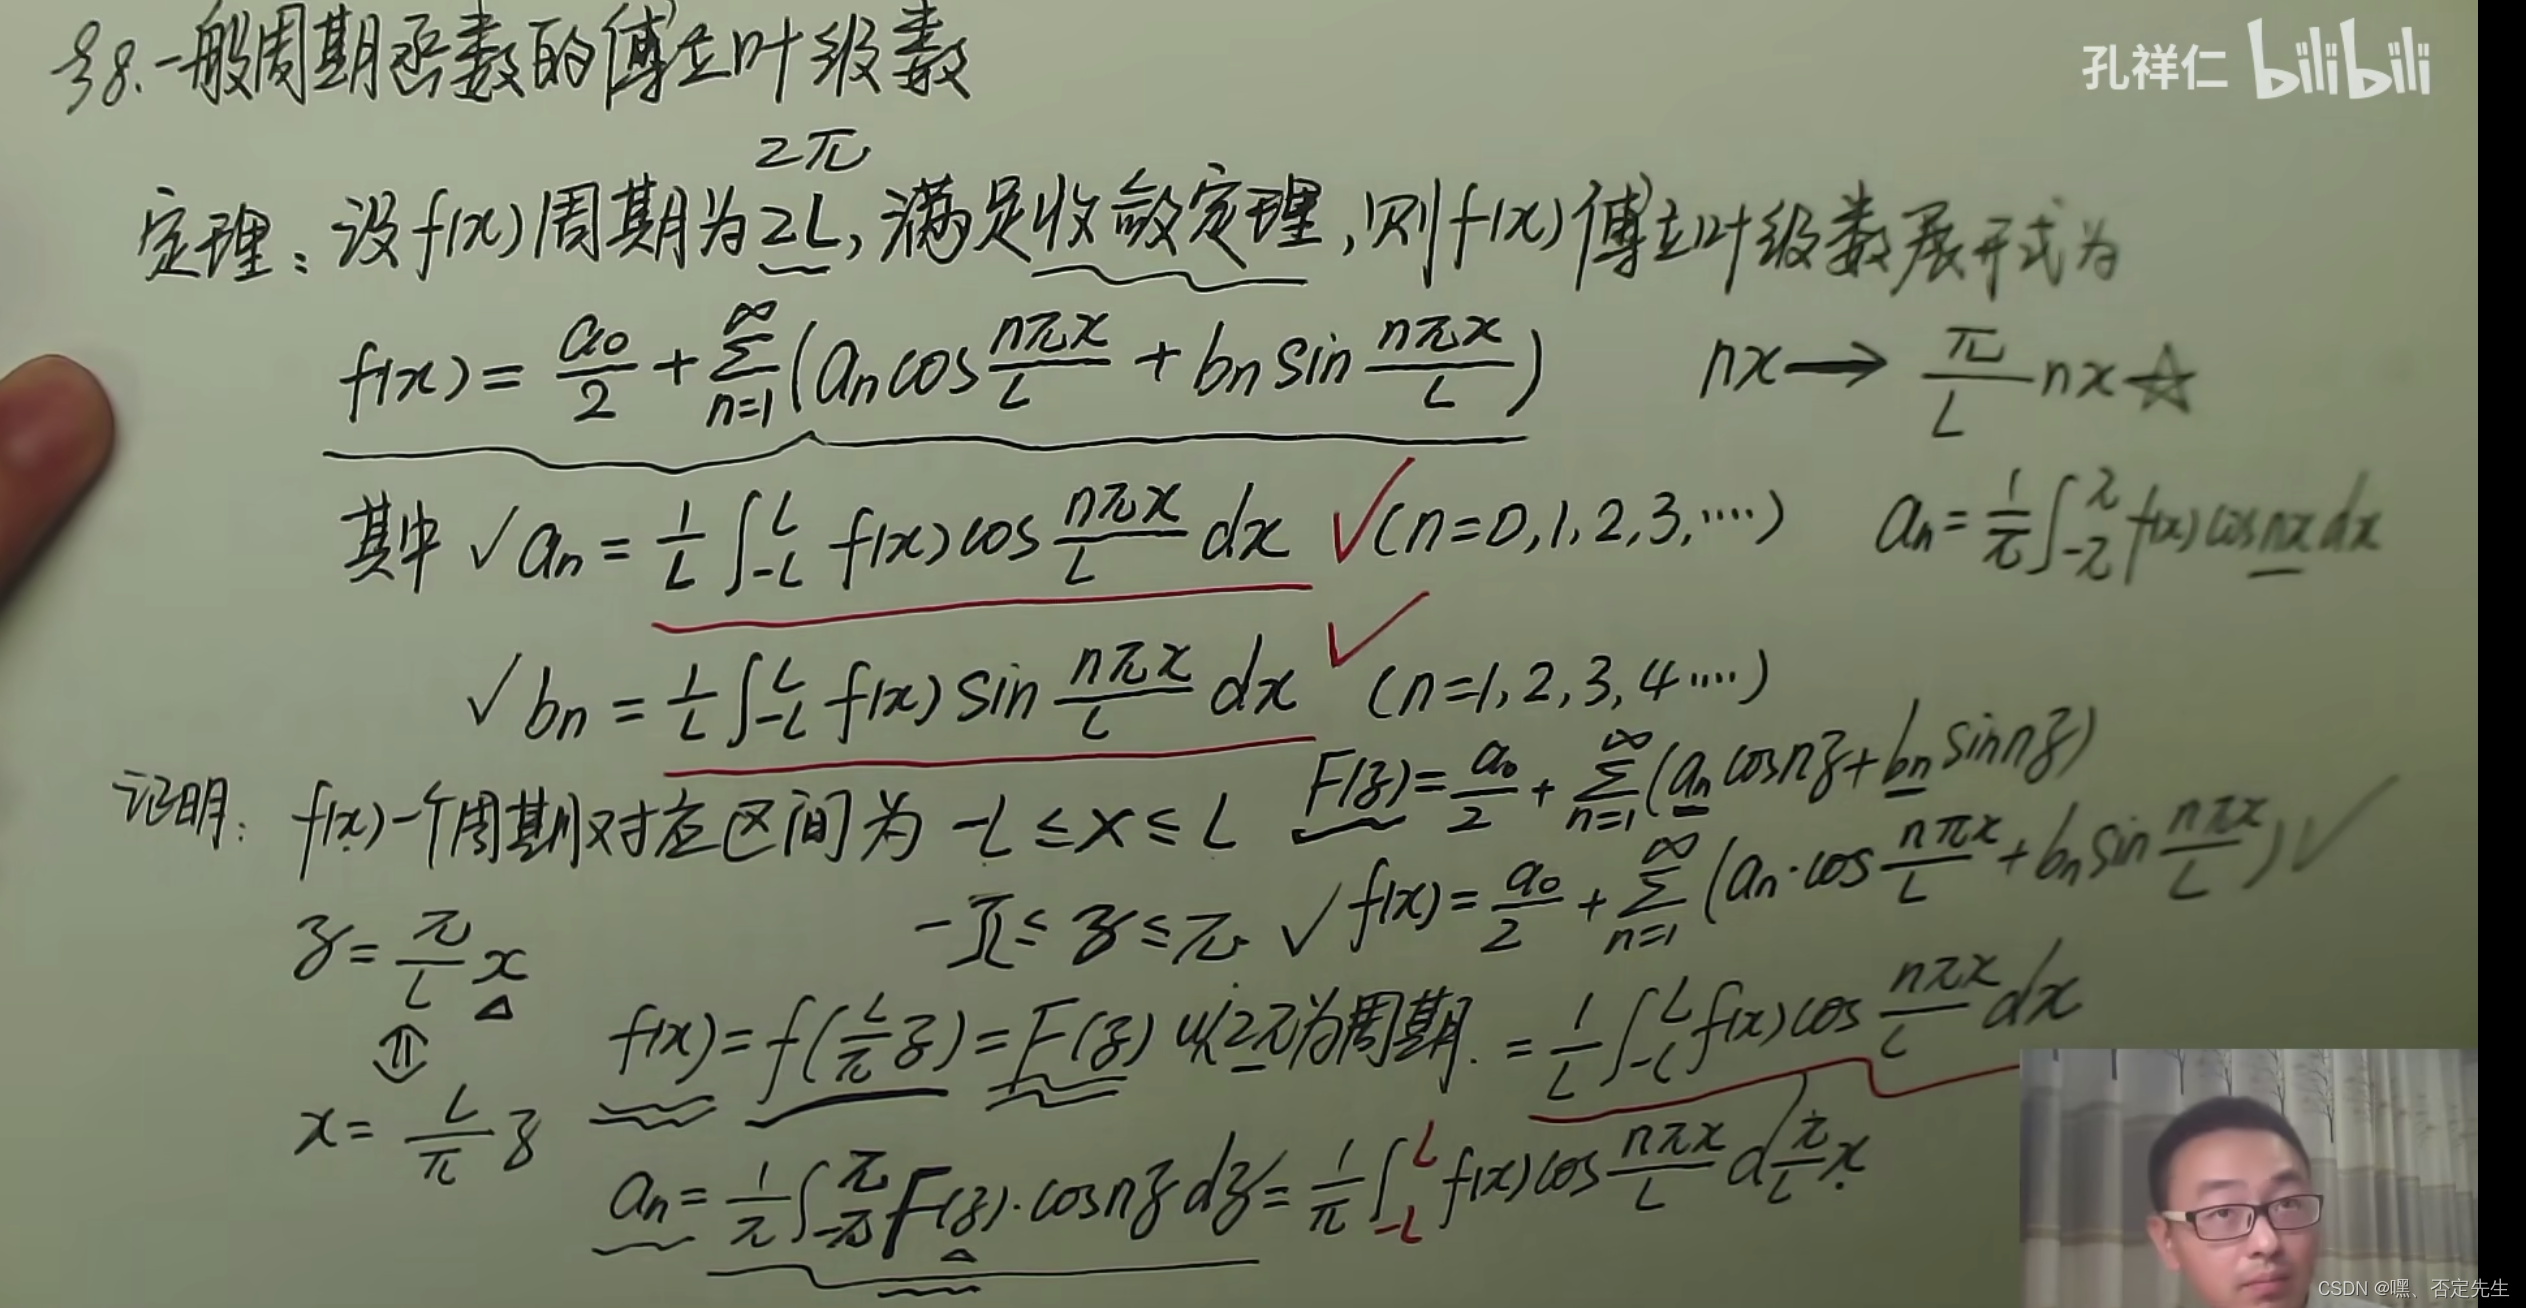 §8.一般周期函数的傅立叶级数
孔祥仁 bilibili
2π
定理：设f(x)周期为2L，满足收敛定理，则f(x)傅立叶级数展开式为
f(x)=a₀/2+∑_{n=1}^{∞}(aₙcos nπx/L+bₙsin nπx/L) nx→π/L nx☆
其中√aₙ=1/L∫_{-L}^{L}f(x)cos nπx/L dx √(n=0,1,2,3,····) aₙ=1/π∫_{-π}^{π}f(x)cosnxdx
√bₙ=1/L∫_{-L}^{L}f(x)sin nπx/L dx √(n=1,2,3,4····)
证明：f(x)一个周期对应区间为 -L≤x≤L F(z)=a₀/2+∑_{n=1}^{∞}(aₙcosnz+bₙsinnz)
z=π/L x -π≤z≤π √f(x)=a₀/2+∑_{n=1}^{∞}(aₙ·cos nπx/L+bₙsin nπx/L)√
⇕ f(x)=f(L/π z)=F(z)以2π为周期. =1/L∫_{-L}^{L}f(x)cos nπx/L dx
x=L/π z
aₙ=1/π∫_{-π}^{π}F(z)·cosnzdz=1/π∫_{-L}^{L}f(x)cos nπx/L d π/L x
CSDN @嘿、否定先生